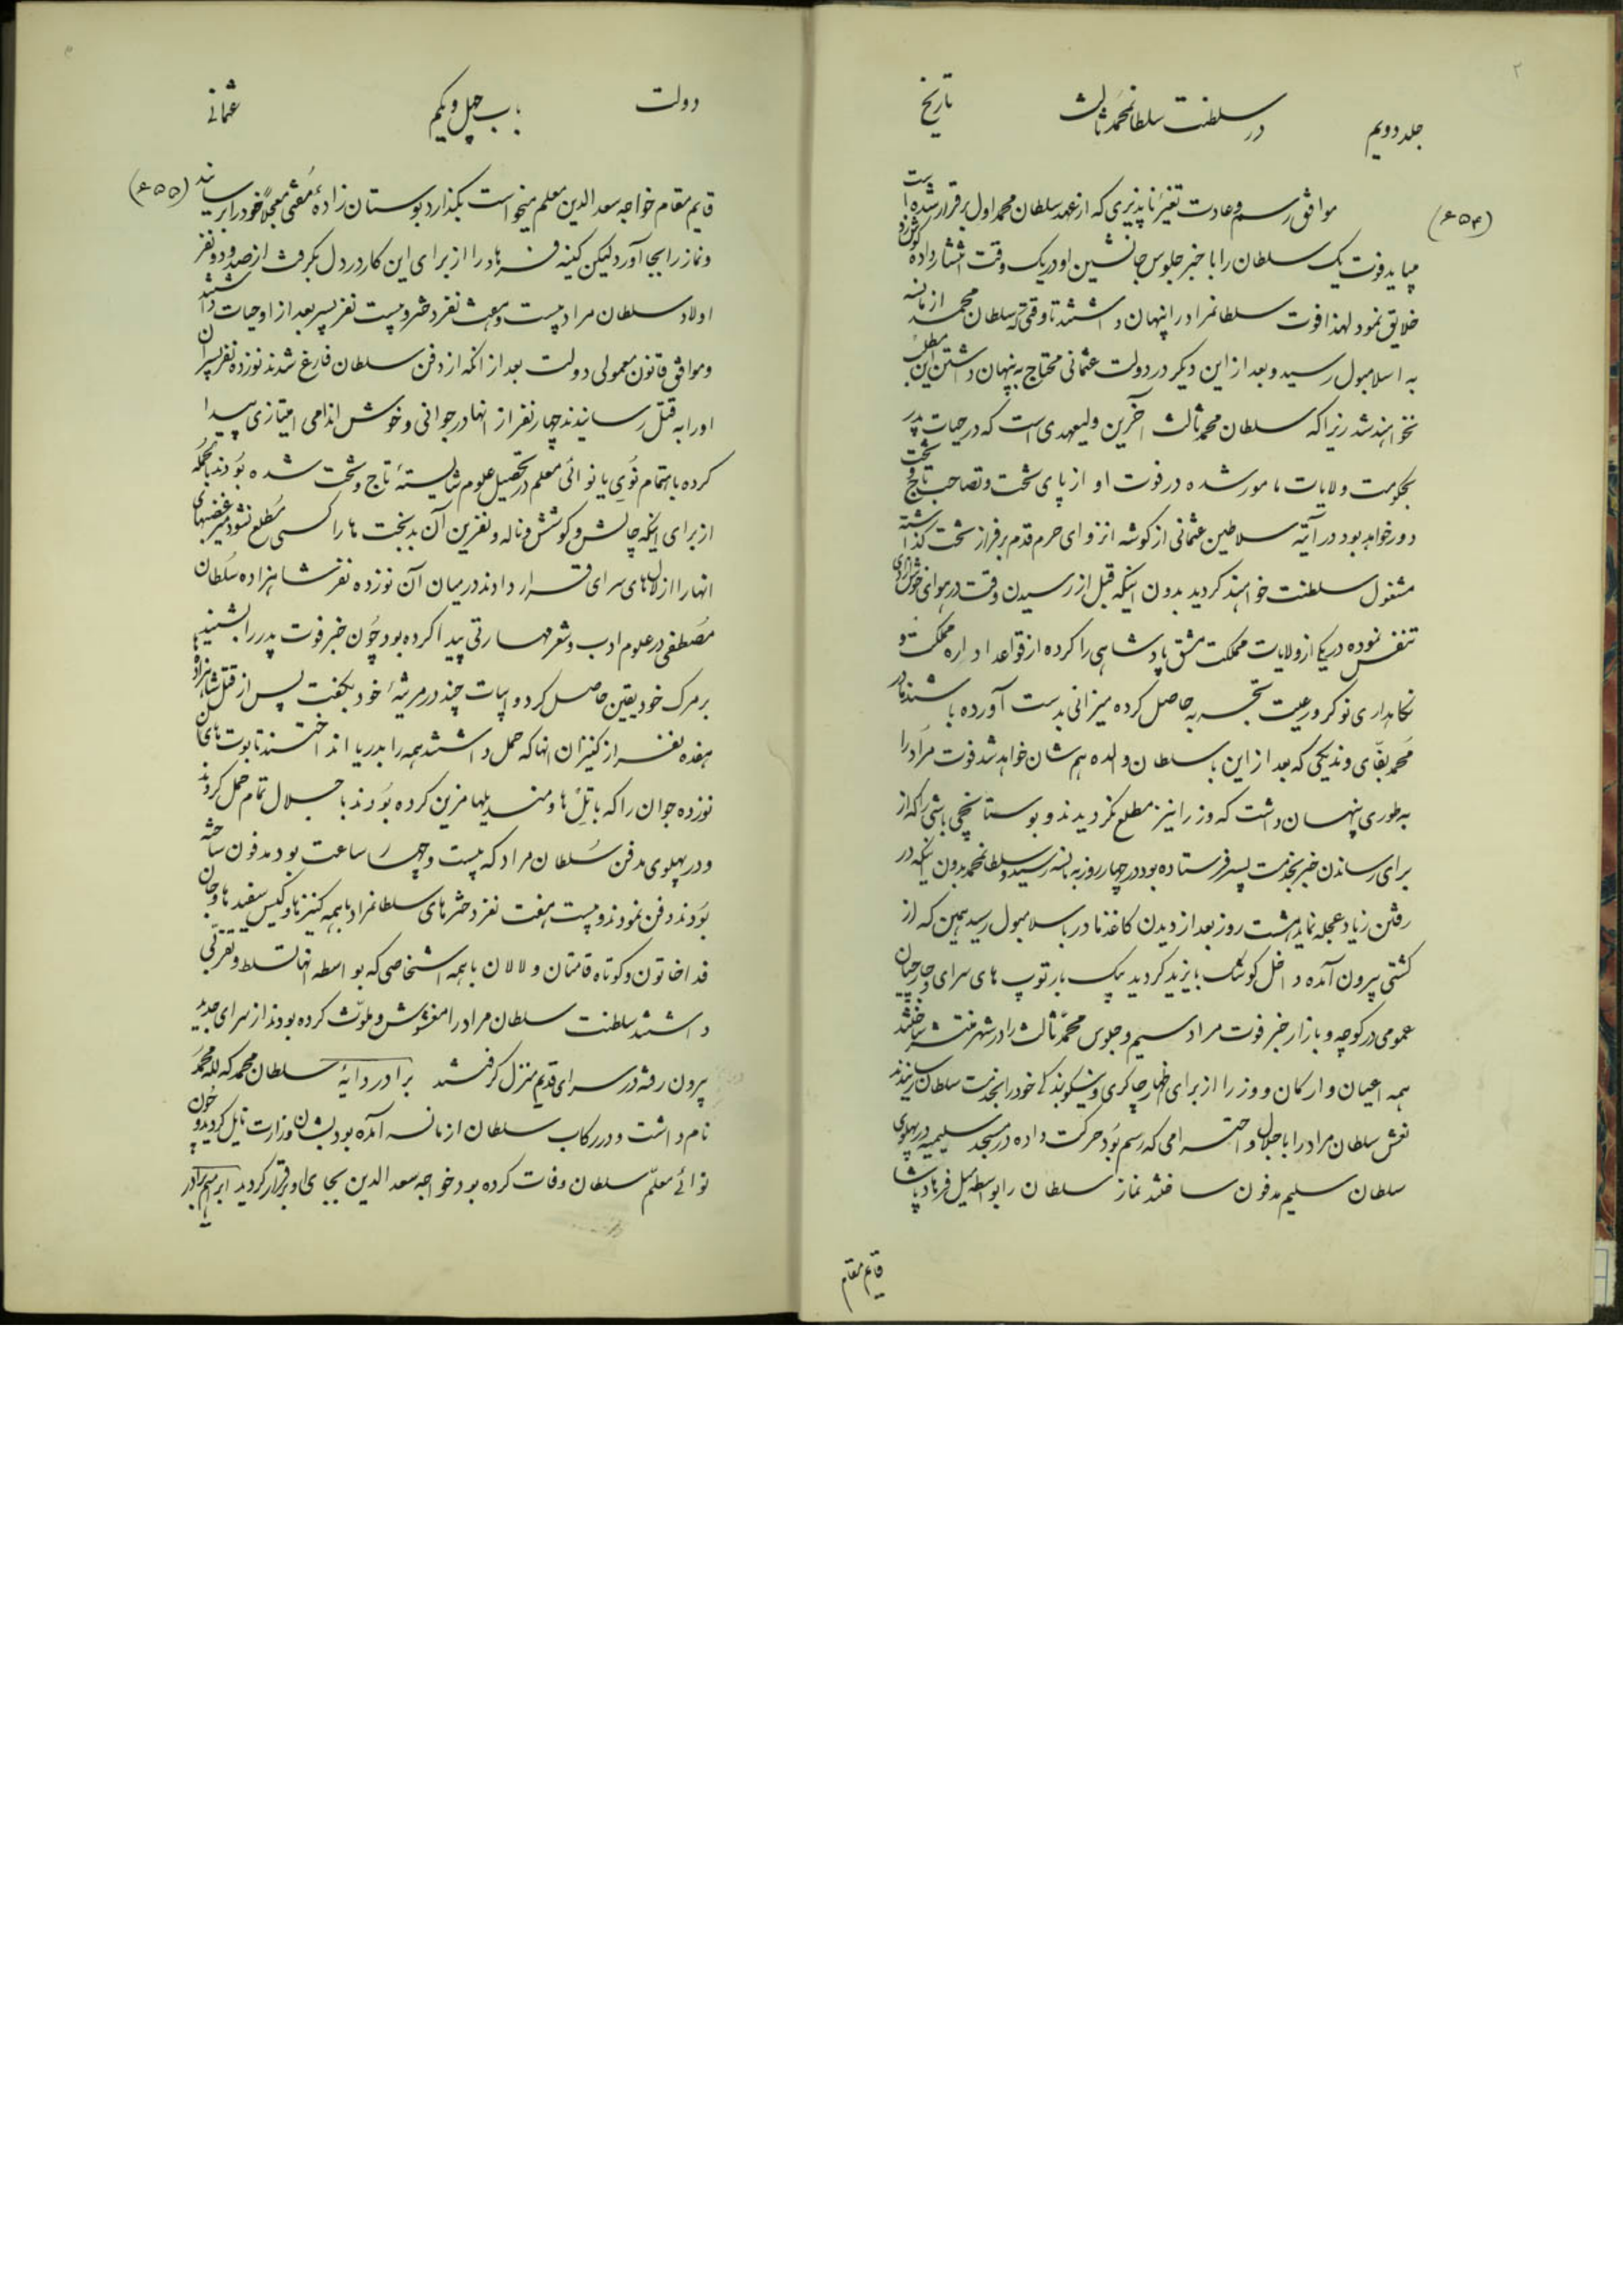 ۲
جلد دویم
در سلطنت سلطانمحمد ثالث
تاریخ
(۶۵۴)
موافق رسم و عادت تغییر ناپذیری که از عهد سلطان محمد اول برقرار شده است
میباید فوت یک سلطان را با خبر جلوس جانشین او در یک وقت انتشار داده گوش زد
خلایق نمود لهذا فوت سلطانمراد را پنهان داشتند تا وقتی که سلطان محمد از مانسه
به اسلامبول رسید و بعد از این دیگر در دولت عثمانی محتاج به پنهان داشتن این مطلب
نخواهند شد زیرا که سلطان محمد ثالث آخرین ولیعهدی است که در حیات پدر
بحکومت ولایات مامور شده در فوت او از پای تخت و تصاحب تاج و تخت
دور خواهد بود در آتیه سلاطین عثمانی از گوشه انزوای حرم قدم بر فراز تخت گذاشته
مشغول سلطنت خواهند کردید بدون اینکه قبل از رسیدن وقت در هوای خوش آزادی
تنفس نموده در یکی از ولایات مملکت مشق پادشاهی را کرده از قواعد اداره مملکت و
نکاهداری نوکر و رعیت تجربه حاصل کرده میزانی بدست آورده باشند مادر
محمد بقای وندیکی که بعد از این با سلطان والده هم شان خواهد شد فوت مراد را
به طوری پنهان داشت که وزرا نیز مطلع نکردیدند و بوستانچی باشی را که از
برای رساندن خبر بخدمت پسر فرستاده بود در چهار روز به مانسه رسید و سلطانمحمد بدون اینکه در
رفتن زیاد عجله نماید هشت روز بعد از دیدن کاغذ مادر باسلامبول رسید همین که از
کشتی بیرون آمده داخل کوشک بایزید کردید یک بار توپ های سرای و جارچیان
عمومی در کوچه و بازار خبر فوت مراد سیم و جلوس محمد ثالث را در شهر منتشر ساختند
همه اعیان و ارکان و وزرا از برای اظهار چاکری و نیکو بندگی خود را بخدمت سلطان رسانیدند
نعش سلطان مراد را با جلال و احترامی که رسم بود حرکت داده در مسجد سلیمیه در پهلوی
سلطان سلیم مدفون ساختند نماز سلطان را بواسطه میل فرهاد پاشا
قایم مقام
۳
دولت
باب چهل و یکم
عثمانی
(۶۵۵)
قایم مقام خواجه سعدالدین معلم میخواست بکذارد بوستان زاده مفتی معجلاً خود را برسانید
و نماز را بجا آورد لیکن کینه فرهاد را از برای این کار در دل بکرفت از صد و دو نفر
اولاد سلطان مراد بیست و هفت نفر دختر و بیست نفر پسر بعد از او حیات داشتند
و موافق قانون معمولی دولت بعد از انکه از دفن سلطان فارغ شدند نوزده نفر پسران
او را به قتل رسانیدند چهار نفر از انها در جوانی و خوش اندامی امتیازی پیدا
کرده باهتمام نوی یا نوائی معلم در تحصیل علوم شایستهٔ تاج و تخت شده بودند بالجمله
از برای اینکه چالش و کوشش و ناله و نفرین آن بدبخت ها را کسی مطلع نشود میر غضبهای
انها را از لال های سرای قرار دادند در میان آن نوزده نفر شاهزاده سلطان
مصطفی در علوم ادب و شعر مهارتی پیدا کرده بود چون خبر فوت پدر را بشنید
بر مرک خود یقین حاصل کرد و ابیات چند در مرثیهٔ خود بکفت پس از قتل شاهزادها
هفده نفر از کنیزان انها که حمل داشتند همه را بدریا انداختند تابوت های ان
نوزده جوان را که با تل ها و مندیلها مزین کرده بودند با جلال تمام حمل کردند
و در پهلوی مدفن سلطان مراد که بیست و چهار ساعت بود مدفون ساخته
بودند دفن نمودند و بیست هفت نفر دخترهای سلطانمراد با همه کنیزها و کیس سفیدها و جان
فدا خاتون و کوتاه قامتان و لالان با همه اشخاصی که بواسطه انها تسلط و تقربی
داشتند سلطنت سلطان مراد را مغشوش و ملوث کرده بودند از سرای جدید
بیرون رفته در سرای قدیم منزل کرفتند برادر دایهٔ سلطان محمد که لله محمد
نام داشت و در رکاب سلطان از مانسه آمده بود بشان وزارت نایل کردید و چون
نوائی معلم سلطان وفات کرده بود خواجه سعدالدین بجای او برقرار کردید ابراهیم برادر